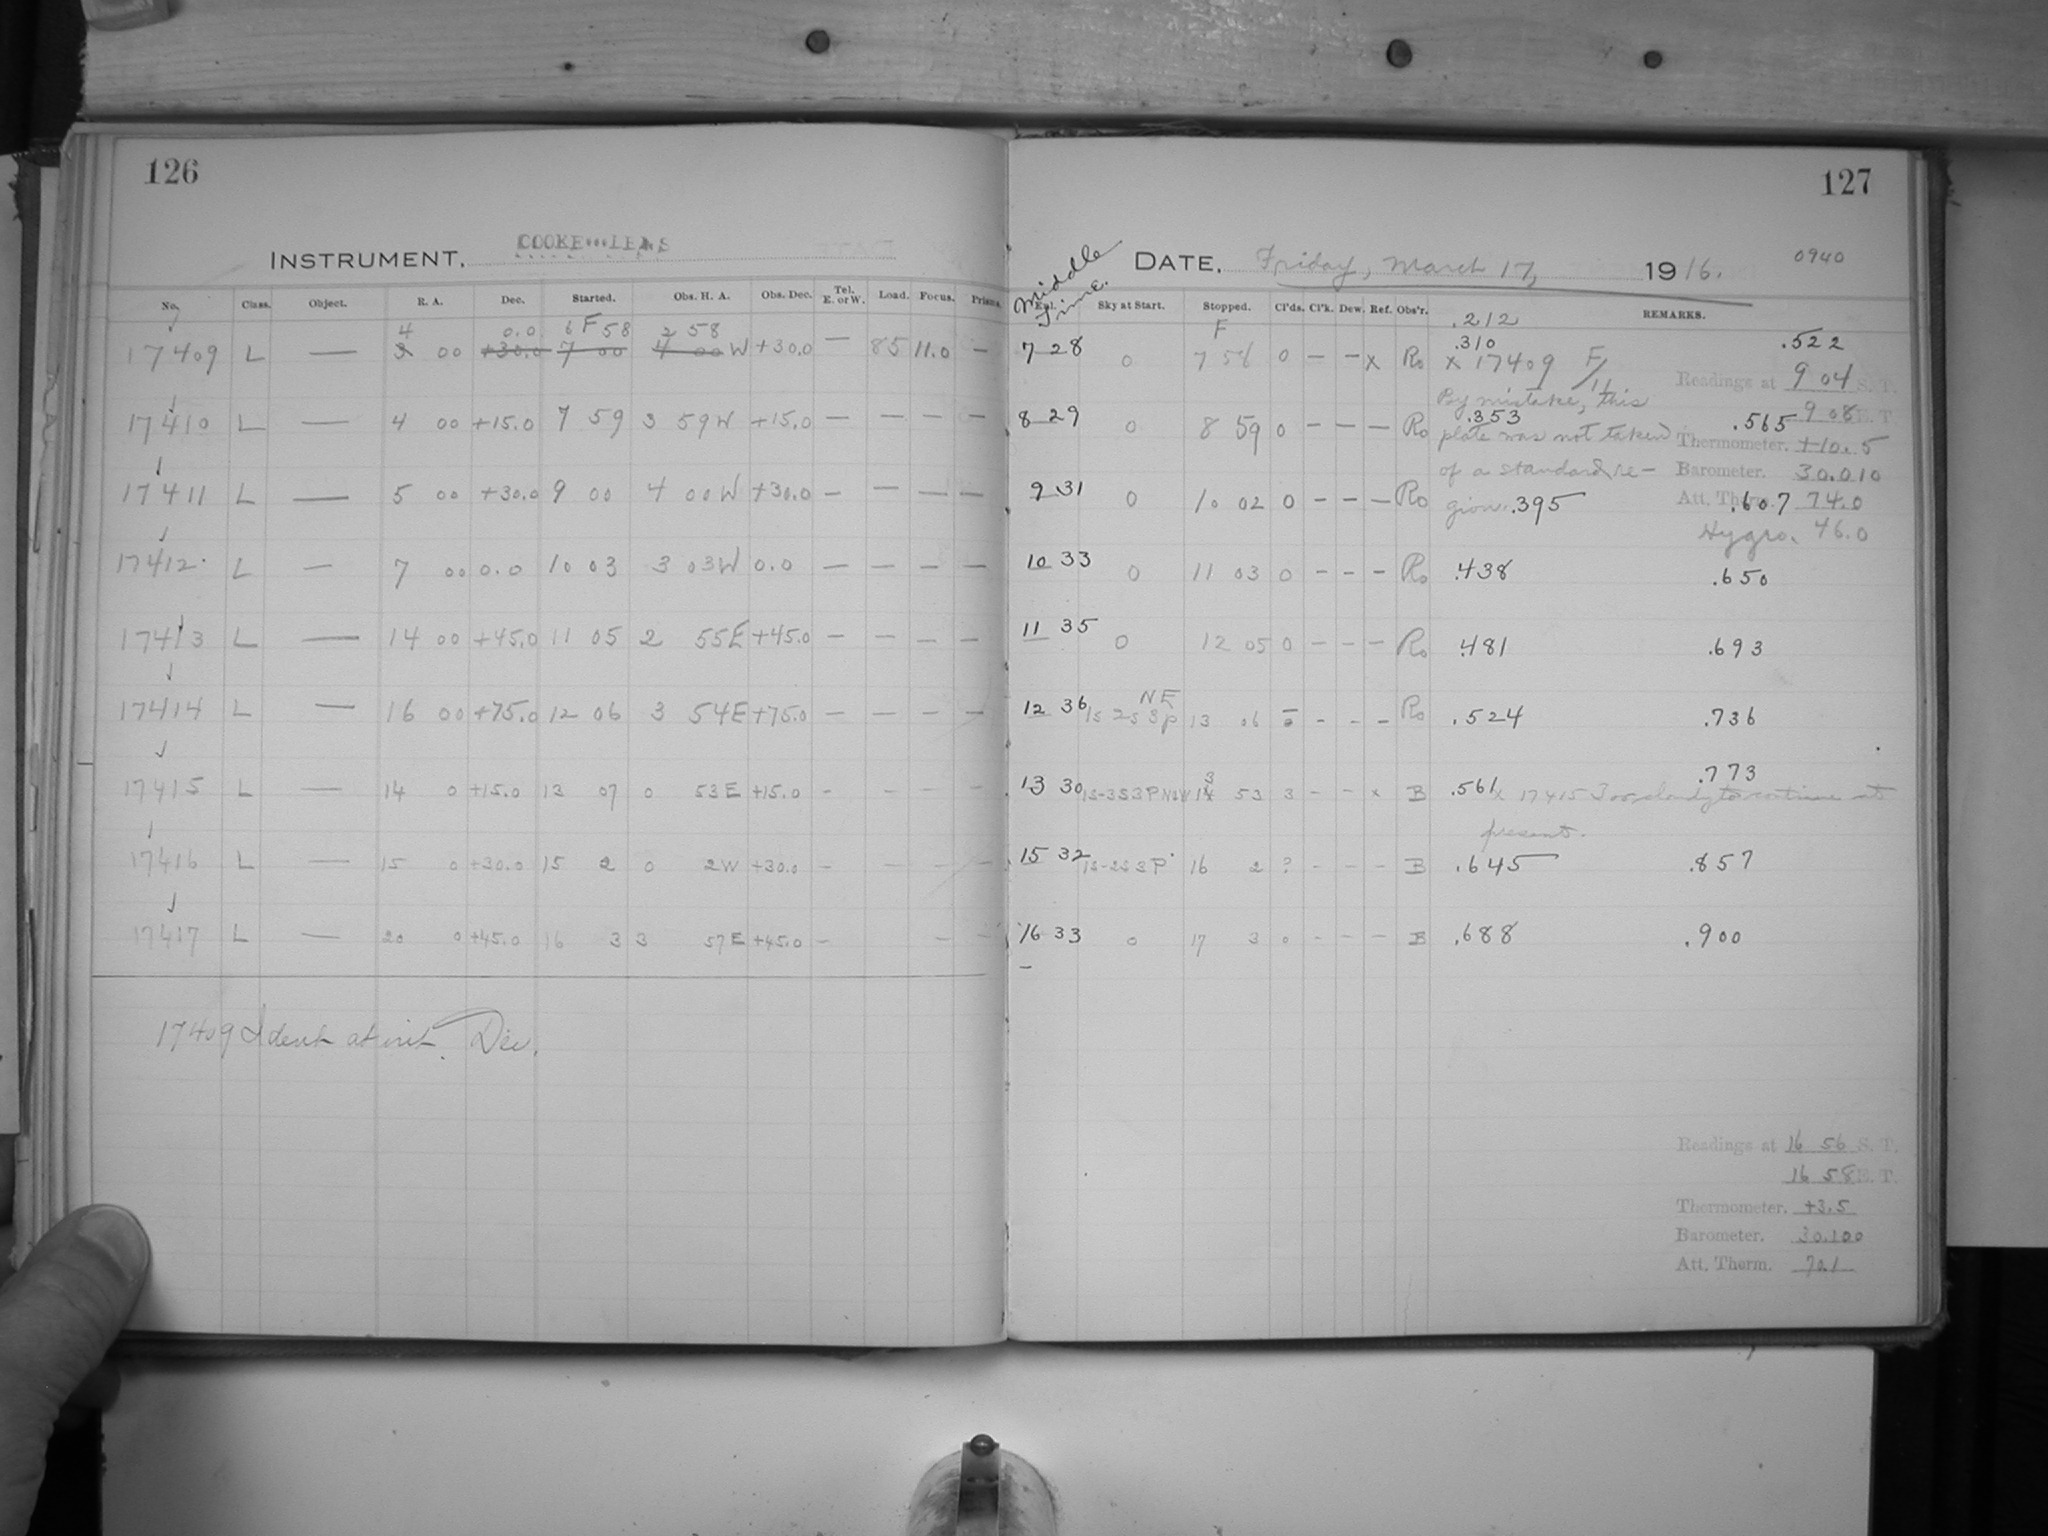 126
INSTRUMENT. COOKE LENS
No. Class. Object. R. A. Dec. Started. Obs. H. A. Obs. Dec. Tel. E. or W. Load. Focus. Prisms.
4 0.0 6 F 58 2 58
17409 L — 3 00 +30.0 7 00 4 00 W +30.0 — 85 11.0 —
17410 L — 4 00 +15.0 7 59 3 59 W +15.0 — — — —
17411 L — 5 00 +30.0 9 00 4 00 W +30.0 — — — —
17412 L — 7 00 0.0 10 03 3 03 W 0.0 — — — —
17413 L — 14 00 +45.0 11 05 2 55 E +45.0 — — — —
17414 L — 16 00 +75.0 12 06 3 54 E +75.0 — — — —
17415 L — 14 0 +15.0 13 07 0 53 E +15.0 - - - -
17416 L — 15 0 +30.0 15 2 0 2 W +30.0 - - - -
17417 L — 20 0 +45.0 16 3 3 57 E +45.0 - - -
17409 Ident at init. Dec.
127
DATE. Friday, March 17, 1916. 0940
Middle Time.
Expl. Sky at Start. Stopped. Cl'ds. Cl'k. Dew. Ref. Obs'r. REMARKS.
F .212
.310 .522
7 28 0 7 58 0 — — x Ro x 17409 F
Readings at 9 04 S. T.
By mistake, this
9 08 E. T.
8 29 0 8 59 0 — — — Ro .353 .565
plate was not taken
Thermometer. +10.5
of a standard re-
Barometer. 30.010
9 31 0 10 02 0 — — — Ro gion. .395 .607
Att. Therm. 74.0
Hygro. 46.0
10 33 0 11 03 0 — — — Ro .438 .650
11 35 0 12 05 0 — — — Ro .481 .693
NE
12 36 1s 2s 3p 13 06 - - - Ro .524 .736
3 .773
13 30 1S-3S3P NSW 14 53 3 - - x B .561 x 17415 Too cloudy to continue at
present.
15 32 1S-2S3P 16 2 ? - - - B .645 .857
16 33 0 17 3 0 - - - B .688 .900
Readings at 16 56 S. T.
16 58 E. T.
Thermometer. +3.5
Barometer. 30.100
Att. Therm. 70.1